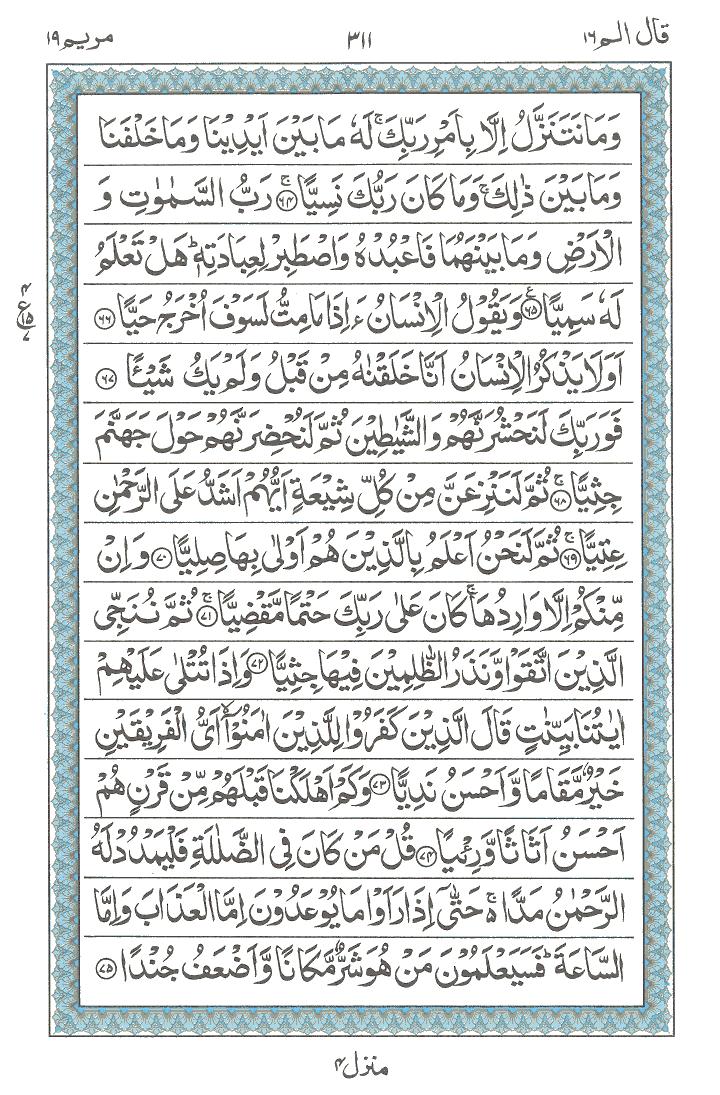 قال الم ١٦ ٣١١ مريم ١٩
وَمَا نَتَنَزَّلُ اِلَّا بِاَمْرِ رَبِّكَ ۚ لَهٗ مَا بَيْنَ اَيْدِيْنَا وَمَا خَلْفَنَا
وَمَا بَيْنَ ذٰلِكَ ۚ وَمَا كَانَ رَبُّكَ نَسِيًّا ۚ ﴿۶۴﴾ رَبُّ السَّمٰوٰتِ وَ
الْاَرْضِ وَمَا بَيْنَهُمَا فَاعْبُدْهُ وَاصْطَبِرْ لِعِبَادَتِهٖ ؕ هَلْ تَعْلَمُ
لَهٗ سَمِيًّا ﴿۶۵﴾ ع وَيَقُوْلُ الْاِنْسَانُ ءَ اِذَا مَا مِتُّ لَسَوْفَ اُخْرَجُ حَيًّا ﴿۶۶﴾
۴ ع ۱۵ ۷
اَوَلَا يَذْكُرُ الْاِنْسَانُ اَنَّا خَلَقْنٰهُ مِنْ قَبْلُ وَلَمْ يَكُ شَيْـًٔا ﴿۶۷﴾
فَوَرَبِّكَ لَنَحْشُرَنَّهُمْ وَالشَّيٰطِيْنَ ثُمَّ لَنُحْضِرَنَّهُمْ حَوْلَ جَهَنَّمَ
جِثِيًّا ۚ ﴿۶۸﴾ ثُمَّ لَنَنْزِعَنَّ مِنْ كُلِّ شِيْعَةٍ اَيُّهُمْ اَشَدُّ عَلَى الرَّحْمٰنِ
عِتِيًّا ۚ ﴿۶۹﴾ ثُمَّ لَنَحْنُ اَعْلَمُ بِالَّذِيْنَ هُمْ اَوْلٰى بِهَا صِلِيًّا ﴿۷۰﴾ وَاِنْ
مِّنْكُمْ اِلَّا وَارِدُهَا ۚ كَانَ عَلٰى رَبِّكَ حَتْمًا مَّقْضِيًّا ۚ ﴿۷۱﴾ ثُمَّ نُنَجِّى
الَّذِيْنَ اتَّقَوْا وَّنَذَرُ الظّٰلِمِيْنَ فِيْهَا جِثِيًّا ﴿۷۲﴾ وَاِذَا تُتْلٰى عَلَيْهِمْ
اٰيٰتُنَا بَيِّنٰتٍ قَالَ الَّذِيْنَ كَفَرُوْا لِلَّذِيْنَ اٰمَنُوْٓا ۙ اَىُّ الْفَرِيْقَيْنِ
خَيْرٌ مَّقَامًا وَّاَحْسَنُ نَدِيًّا ﴿۷۳﴾ وَكَمْ اَهْلَكْنَا قَبْلَهُمْ مِّنْ قَرْنٍ هُمْ
اَحْسَنُ اَثَاثًا وَّرِءْيًا ﴿۷۴﴾ قُلْ مَنْ كَانَ فِى الضَّلٰلَةِ فَلْيَمْدُدْ لَهُ
الرَّحْمٰنُ مَدًّا ۵ ۚ حَتّٰٓى اِذَا رَاَوْا مَا يُوْعَدُوْنَ اِمَّا الْعَذَابَ وَاِمَّا
السَّاعَةَ ؕ فَسَيَعْلَمُوْنَ مَنْ هُوَ شَرٌّ مَّكَانًا وَّاَضْعَفُ جُنْدًا ﴿۷۵﴾
منزل ۴